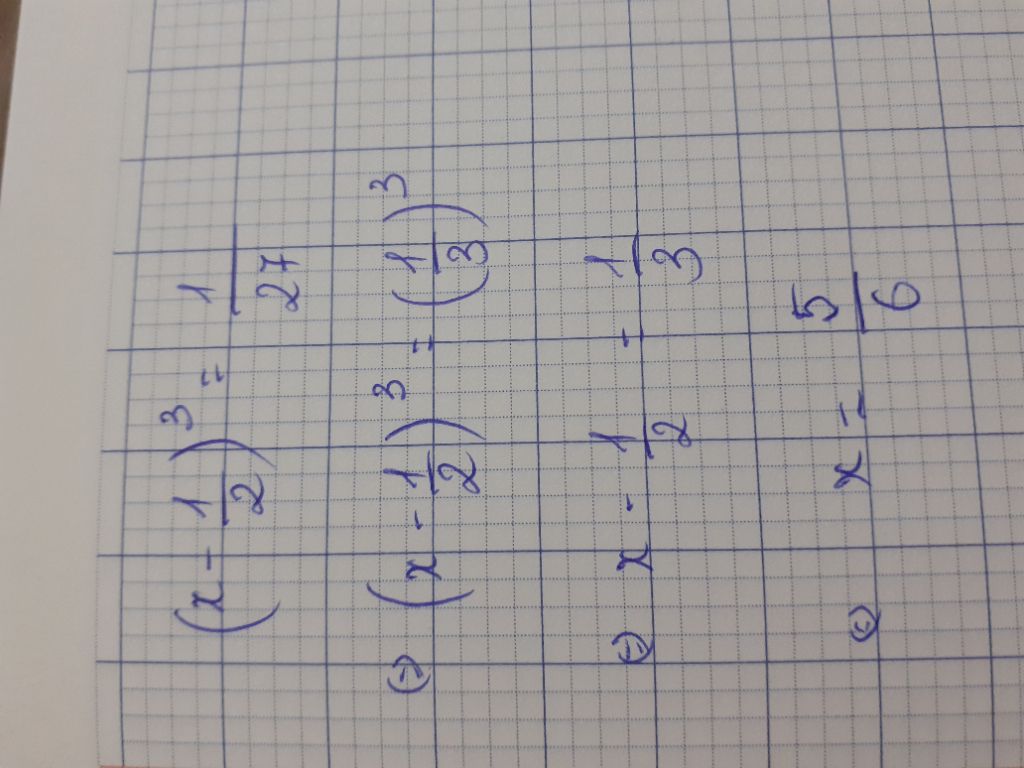 (x - 1/2)³ = 1/27
⇔ (x - 1/2)³ = (1/3)³
⇔ x - 1/2 = 1/3
⇔ x = 5/6